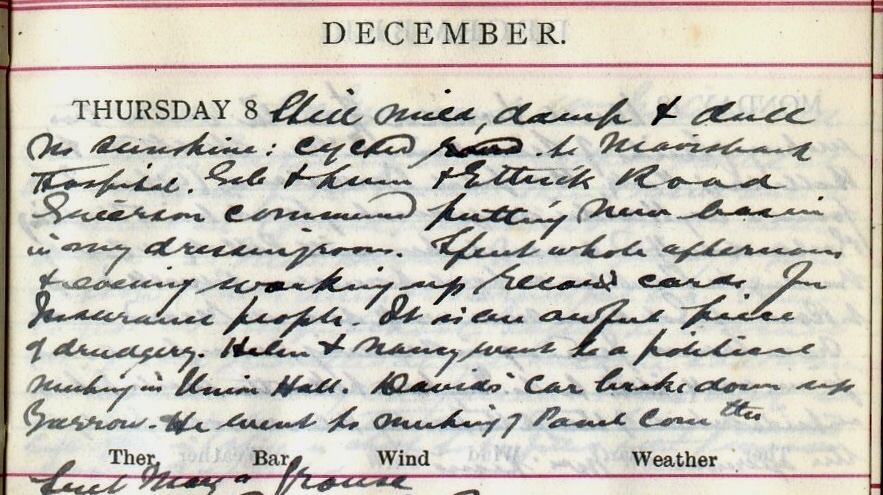 DECEMBER.
THURSDAY 8 Still mild, damp & dull
No sunshine: cycled round to
Hospital. & Ettrick Road
commenced putting new basin
in my dressingroom. Spent whole afternoon
& evening working up record cards for
Insurance people. It is an awful piece
of drudgery. Helen & Nancy went to a political
meeting in Union Hall. Davids' car broke down up
Yarrow. He went to meeting of Panel Com ttee
Ther. Bar. Wind Weather
Sent May a grouse